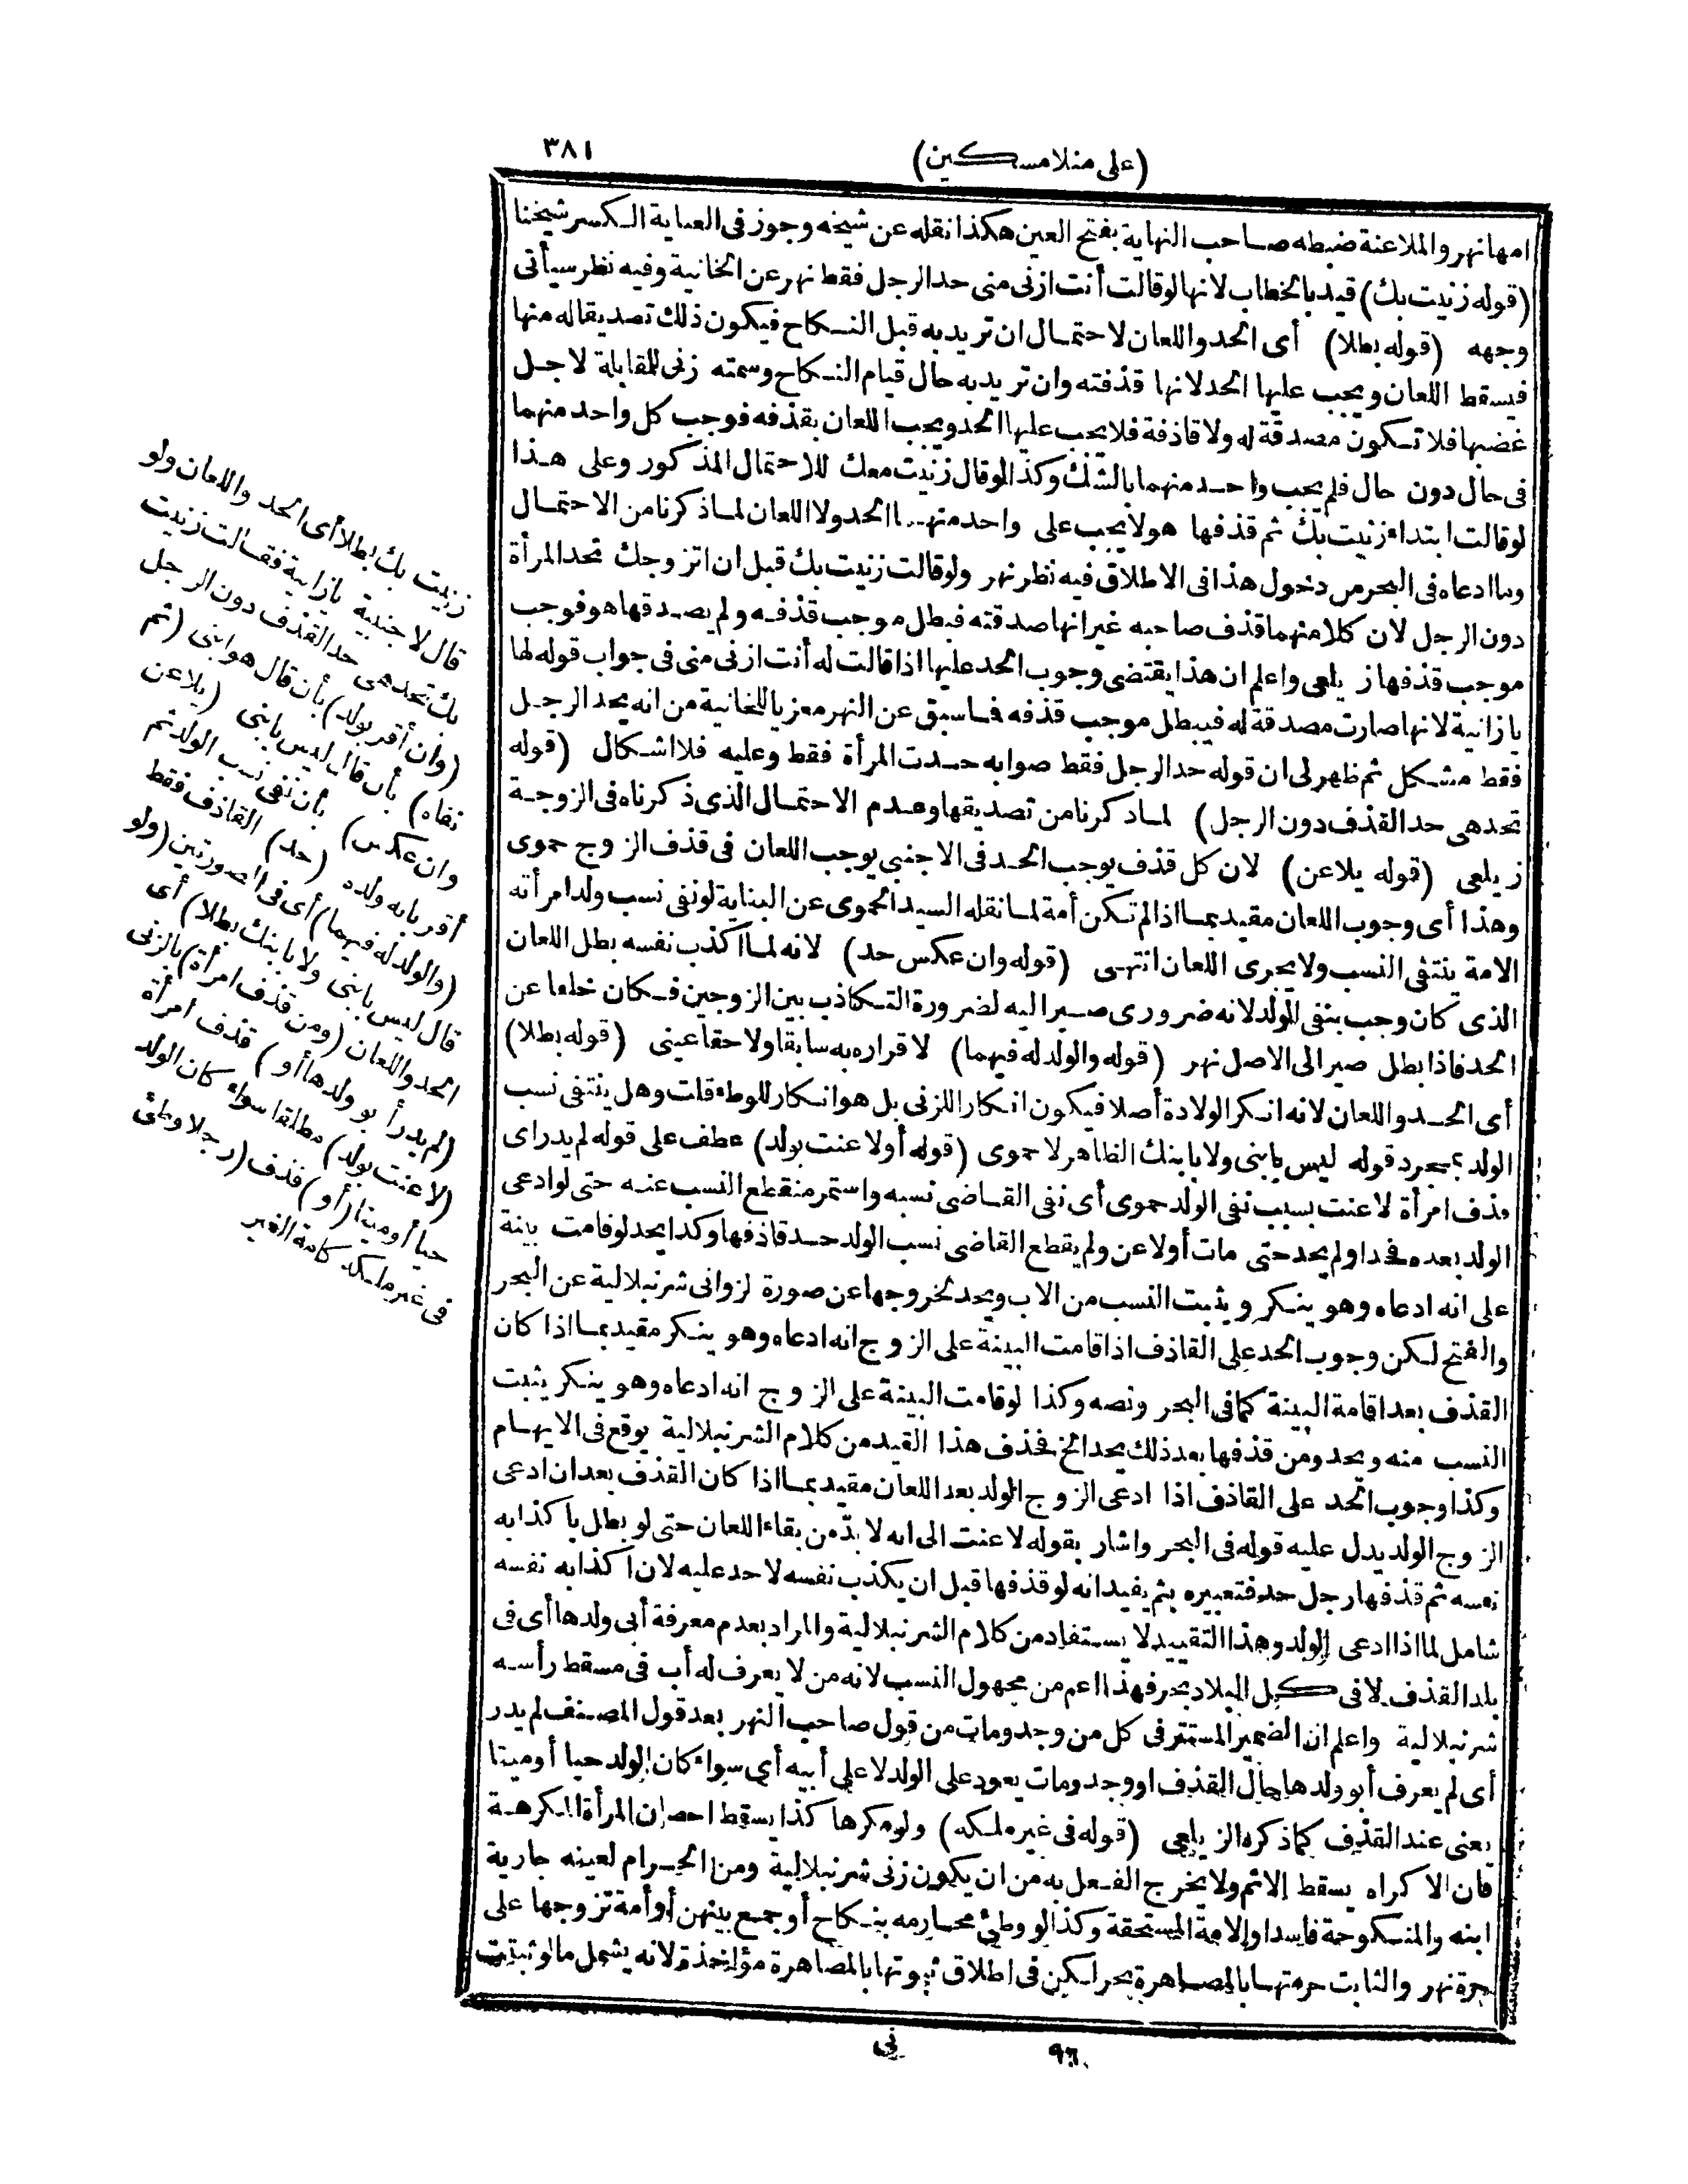 (على منلا مسكين)
٣٨١
امها نهر والملاعنة ضبطه صاحب النهاية بفتح العين هكذا نقله عن شيخه وجوز فى العناية الكسر شيخنا
(قوله زنيت بك) قيد بالخطاب لانها لو قالت أنت ازنى منى حد الرجل فقط نهر عن الخانية وفيه نظر سيأتى
وجهه (قوله بطلا) أى الحد واللعان لاحتمال ان تريد به قبل النكاح فيكون ذلك تصديقا له منها
فيسقط اللعان ويجب عليها الحد لانها قذفته وان تريد به حال قيام النكاح وسمته زنى للمقابلة لاجل
غضبها فلا تكون مصدقة له ولا قاذفة فلا يجب عليها الحد ويجب اللعان بقذفه فوجب كل واحد منهما
فى حال دون حال فلم يجب واحد منهما بالشك وكذا لو قال زنيت معك للاحتمال المذكور وعلى هذا
لو قالت ابتداء زنيت بك ثم قذفها هو لا يجب على واحد منهما الحد ولا اللعان لما ذكرنا من الاحتمال
وما ادعاه فى البحر من دخول هذا فى الاطلاق فيه نظر نهر ولو قالت زنيت بك قبل ان اتزوجك تحد المرأة
دون الرجل لان كلا منهما قذف صاحبه غير انها صدقته فبطل موجب قذفه ولم يصدقها هو فوجب
موجب قذفها زيلعى واعلم ان هذا يقتضى وجوب الحد عليها اذا قالت له أنت ازنى منى فى جواب قوله لها
يا زانية لانها صارت مصدقة له فيبطل موجب قذفه فما سبق عن النهر معزيا للخانية من انه يحد الرجل
فقط مشكل ثم ظهر لى ان قوله حد الرجل فقط صوابه حدت المرأة فقط وعليه فلا اشكال (قوله
تحد هى حد القذف دون الرجل) لما ذكرنا من تصديقها وعدم الاحتمال الذى ذكرناه فى الزوجة
زيلعى (قوله يلاعن) لان كل قذف يوجب الحد فى الاجنبى يوجب اللعان فى قذف الزوج حموى
وهذا أى وجوب اللعان مقيد بما اذا لم تكن أمة لما نقله السيد الحموى عن البناية لو نفى نسب ولد امرأته
الامة ينتفى النسب ولا يجرى اللعان انتهى (قوله وان عكس حد) لانه لما اكذب نفسه بطل اللعان
الذى كان وجب بنفى الولد لانه ضرورى صير اليه لضرورة التكاذب بين الزوجين فكان خلفا عن
الحد فاذا بطل صير الى الاصل نهر (قوله والولد له فيهما) لاقراره به سابقا ولاحقا عينى (قوله بطلا)
أى الحد واللعان لانه انكر الولادة أصلا فيكون انكارا للزنى بل هو انكار للوطء قلت وهل ينتفى نسب
الولد بمجرد قوله ليس بابنى ولا بابنك الظاهر لا حموى (قوله أو لاعنت بولد) عطف على قوله لم يدر اى
قذف امرأة لاعنت بسبب نفى الولد حموى أى نفى القاضى نسبه واستمر منقطع النسب عنه حتى لو ادعى
الولد بعده فحد او لم يحد حتى مات أو لاعن ولم يقطع القاضى نسب الولد حد قاذفها وكذا يحد لو قامت بينة
على انه ادعاه وهو ينكر ويثبت النسب من الاب ويحد لخروجها عن صورة لزوانى شرنبلالية عن البحر
والفتح لكن وجوب الحد على القاذف اذا قامت البينة على الزوج انه ادعاه وهو ينكر مقيد بما اذا كان
القذف بعد اقامة البينة كما فى البحر ونصه وكذا لو قامت البينة على الزوج انه ادعاه وهو ينكر يثبت
النسب منه ويحد ومن قذفها بعد ذلك يحد الخ فحذف هذا القيد من كلام الشرنبلالية يوقع فى الايهام
وكذا وجوب الحد على القاذف اذا ادعى الزوج الولد بعد اللعان مقيد بما اذا كان القذف بعد ان ادعى
الزوج الولد يدل عليه قوله فى البحر واشار بقوله لاعنت الى انه لا بدّ من بقاء اللعان حتى لو بطل باكذابه
نفسه ثم قذفها رجل حد فتعبيره بثم يفيد انه لو قذفها قبل ان يكذب نفسه لا حد عليه لان اكذابه نفسه
شامل لما اذا ادعى الولد وهذا التقييد لا يستفاد من كلام الشرنبلالية والمراد بعدم معرفة أبى ولدها أى فى
بلد القذف لا فى كل البلاد بحر فهذا اعم من مجهول النسب لانه من لا يعرف له أب فى مسقط رأسه
شرنبلالية واعلم ان الضمير المستتر فى كل من وجد ومات من قول صاحب النهر بعد قول المصنف لم يدر
أى لم يعرف أبو ولدها حال القذف او وجد ومات يعود على الولد لا على أبيه أى سواء كان الولد حيا أو ميتا
يعنى عند القذف كما ذكره الزيلعى (قوله فى غير ملكه) ولو مكرها كذا يسقط احصان المرأة المكرهة
فان الاكراه يسقط الاثم ولا يخرج الفعل به من ان يكون زنى شرنبلالية ومن الحرام لعينه جارية
ابنه والمنكوحة فاسدا والامة المستحقة وكذا لو وطئ محارمه بنكاح أو جمع بينهن أو أمة تزوجها على
حرة نهر والثابت حرمتها بالمصاهرة بحر لكن فى اطلاق ثبوتها بالمصاهرة مؤاخذة لانه يشمل ما لو ثبتت
زنيت بك بطلا أى الحد واللعان ولو
قال لاجنبية يا زانية فقالت زنيت
بك تحد هى حد القذف دون الرجل
(وان أقر بولد) بأن قال هو ابنى (ثم
نفاه) بأن قال ليس بابنى (يلاعن
وان عكس) بأن نفى نسب الولد ثم
أقر بانه ولده (حد) القاذف فقط
(والولد له فيهما) أى فى الصورتين (ولو
قال ليس بابنى ولا بابنك بطلا) أى
الحد واللعان (ومن قذف امرأة) بالزنى
(لم يدر أبو ولدها أو) قذف امرأة
(لاعنت بولد) مطلقا سواء كان الولد
حيا أو ميتا (أو) قذف (رجلا وطئ
فى غير ملكه كامة الغير
٩٦
نى